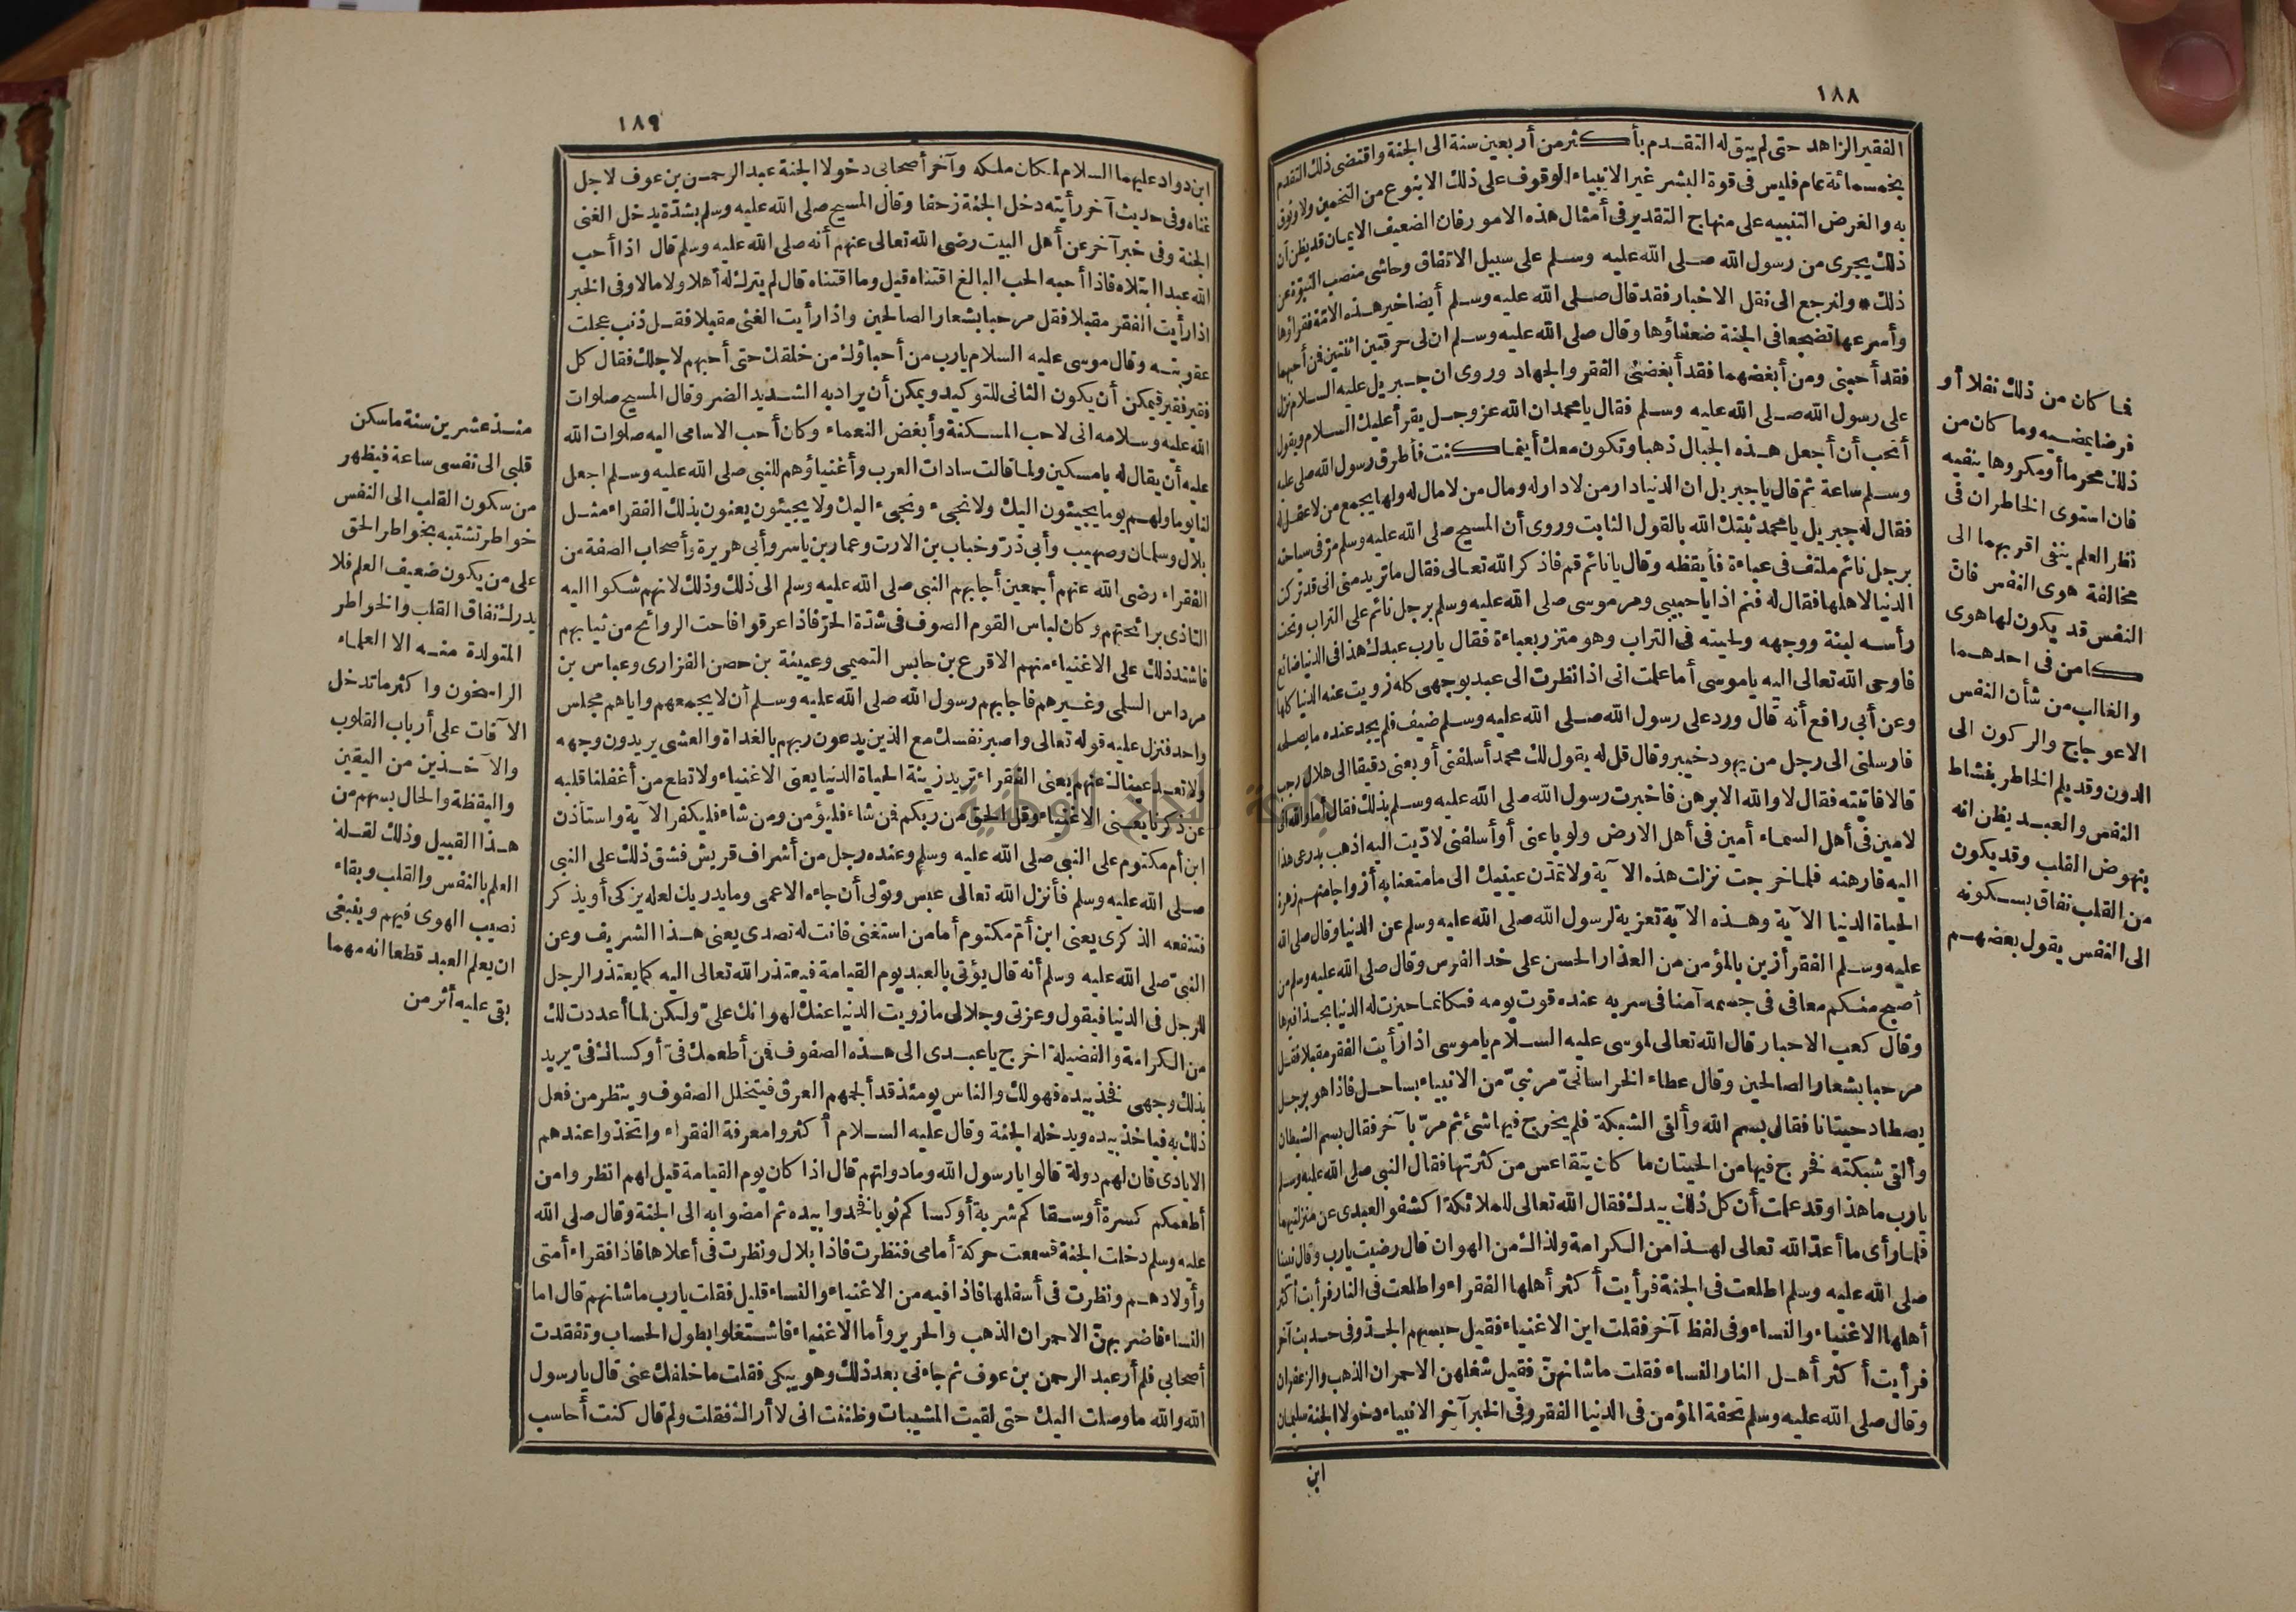 ١٨٨
الفقير الزاهد حتى لم يبق له التقدم بأكثر من أربعين سنة الى الجنة واقتضى ذلك التقدم
بخمسمائة عام فليس فى قوة البشر غير الانبياء الوقوف على ذلك الا بنوع من التخمين ولا وثوق
به والغرض التنبيه على منهاج التقدير فى أمثال هذه الامور فان الضعيف الايمان قد يظن أن
ذلك يجرى من رسول الله صلى الله عليه وسلم على سبيل الاتفاق وحاشى منصب النبوة عن
ذلك * ولنرجع الى نقل الاخبار فقد قال صلى الله عليه وسلم أيضا خير هذه الامة فقراؤها
وأسرعها تضجعا فى الجنة ضعفاؤها وقال صلى الله عليه وسلم ان لى حرفتين اثنتين فمن أحبهما
فقد أحبنى ومن أبغضهما فقد أبغضنى الفقر والجهاد وروى ان جبريل عليه السلام نزل
على رسول الله صلى الله عليه وسلم فقال يا محمد ان الله عز وجل يقرأ عليك السلام ويقول
أتحب أن أجعل هذه الجبال ذهبا وتكون معك أينما كنت فأطرق رسول الله صلى الله عليه
وسلم ساعة ثم قال يا جبريل ان الدنيا دار من لا دار له ومال من لا مال له ولها يجمع من لا عقل له
فقال له جبريل يا محمد ثبتك الله بالقول الثابت وروى أن المسيح صلى الله عليه وسلم مرّ فى سياحته
برجل نائم ملتف فى عباءة فأيقظه وقال يا نائم قم فاذكر الله تعالى فقال ما تريد منى انى قد تركت
الدنيا لاهلها فقال له فنم اذا يا حبيبى ومر موسى صلى الله عليه وسلم برجل نائم على التراب وتحت
رأسه لبنة ووجهه ولحيته فى التراب وهو متزر بعباءة فقال يارب عبدك هذا فى الدنيا ضائع
فاوحى الله تعالى اليه ياموسى أما علمت انى اذا نظرت الى عبد بوجهى كله زويت عنه الدنيا كلها
وعن أبي رافع أنه قال ورد على رسول الله صلى الله عليه وسلم ضيف فلم يجد عنده ما يصلحه
فارسلنى الى رجل من يهود خيبر وقال قل له يقول لك محمد أسلفنى أو بعنى دقيقا الى هلال رجب
قال فاتيته فقال لا والله الا برهن فاخبرت رسول الله صلى الله عليه وسلم بذلك فقال أما والله انى
لامين فى أهل السماء أمين فى أهل الارض ولو باعنى أو أسلفنى لادّيت اليه اذهب بدرعى هذا
اليه فارهنه فلما خرجت نزلت هذه الآية ولا تمدّن عينيك الى ما متعنا به أزواجا منهم زهرة
الحياة الدنيا الآية وهذه الآية تعزية لرسول الله صلى الله عليه وسلم عن الدنيا وقال صلى الله
عليه وسلم الفقر أزين بالمؤمن من العذار الحسن على خد الفرس وقال صلى الله عليه وسلم من
أصبح منكم معافى فى جسمه آمنا فى سربه عنده قوت يومه فكانما حيزت له الدنيا بحذافيرها
وقال كعب الاحبار قال الله تعالى لموسى عليه السلام ياموسى اذا رأيت الفقر مقبلا فقل
مرحبا بشعار الصالحين وقال عطاء الخراسانىّ مر نبىّ من الانبياء بساحل فاذا هو برجل
يصطاد حيتانا فقال بسم الله وألقى الشبكة فلم يخرج فيها شئ ثم مرّ بآخر فقال بسم الشيطان
وألقى شبكته فخرج فيها من الحيتان ما كان يتقاعس من كثرتها فقال النبى صلى الله عليه وسلم
يارب ما هذا وقد علمت أن كل ذلك بيدك فقال الله تعالى للملائكة اكشفوا لعبدى عن منزلتيهما
فلما رأى ما أعدّ الله تعالى لهذا من الكرامة ولذاك من الهوان قال رضيت يارب وقال نبينا
صلى الله عليه وسلم اطلعت فى الجنة فرأيت أكثر أهلها الفقراء واطلعت فى النار فرأيت أكثر
أهلها الاغنياء والنساء وفى لفظ آخر فقلت اين الاغنياء فقيل حبسهم الجد وفى حديث آخر
فرأيت أكثر أهل النار النساء فقلت ما شانهنّ فقيل شغلهن الاحمران الذهب والزعفران
وقال صلى الله عليه وسلم تحفة المؤمن فى الدنيا الفقر وفى الخبر آخر الانبياء دخولا الجنة سليمان
ابن
فما كان من ذلك نفلا أو
فرضا يمضيه وما كان من
ذلك محرما أو مكروها ينفيه
فان استوى الخاطران فى
نظر العلم ينفى اقربهما الى
مخالفة هوى النفس فان
النفس قد يكون لها هوى
كامن فى احدهما
والغالب من شأن النفس
الاعوجاج والركون الى
الدون وقد يلم الخاطر بنشاط
النفس والعبد يظن انه
بنهوض القلب وقد يكون
من القلب نفاق بسكونه
الى النفس يقول بعضهم
١٨٩
ابن دواد عليهما السلام لمكان ملكه وآخر أصحابى دخولا الجنة عبد الرحمن بن عوف لاجل
غناه وفى حديث آخر رأيته دخل الجنة زحفا وقال المسيح صلى الله عليه وسلم بشدّة يدخل الغنى
الجنة وفى خبر آخر عن أهل البيت رضى الله تعالى عنهم أنه صلى الله عليه وسلم قال اذا أحب
الله عبدا ابتلاه فاذا أحبه الحب البالغ اقتناه قيل وما اقتناه قال لم يترك له أهلا ولا مالا وفى الخبر
اذا رأيت الفقر مقبلا فقل مرحبا بشعار الصالحين واذا رأيت الغنى مقبلا فقل ذنب عجلت
عقوبته وقال موسى عليه السلام يارب من أحباؤك من خلقك حتى أحبهم لاجلك فقال كل
فقير فقير فيمكن أن يكون الثانى للتوكيد ويمكن أن يراد به الشديد الضر وقال المسيح صلوات
الله عليه وسلامه انى لاحب المسكنة وأبغض النعماء وكان أحب الاسامى اليه صلوات الله
عليه أن يقال له يامسكين ولما قالت سادات العرب وأغنياؤهم للنبى صلى الله عليه وسلم اجعل
لنا يوما ولهم يوما يجيئون اليك ولا نجىء ونجىء اليك ولا يجيئون يعنون بذلك الفقراء مثل
بلال وسلمان وصهيب وأبي ذرّ وخباب بن الارت وعمار بن ياسر وأبي هريرة وأصحاب الصفة من
الفقراء رضى الله عنهم أجمعين أجابهم النبى صلى الله عليه وسلم الى ذلك وذلك لانهم شكوا اليه
التاذى برائحتهم وكان لباس القوم الصوف فى شدّة الحرّ فاذا عرقوا فاحت الروائح من ثيابهم
فاشتد ذلك على الاغنياء منهم الاقرع بن حابس التميمى وعيينة بن حصن الفزارى وعباس بن
مرداس السلمى وغيرهم فاجابهم رسول الله صلى الله عليه وسلم أن لا يجمعهم واياهم مجلس
واحد فنزل عليه قوله تعالى واصبر نفسك مع الذين يدعون ربهم بالغداة والعشى يريدون وجهه
ولا تعد عيناك عنهم يعنى الفقراء تريد زينة الحياة الدنيا يعنى الاغنياء ولا تطع من أغفلنا قلبه
عن ذكرنا يعنى الاغنياء وقل الحق من ربكم فمن شاء فليؤمن ومن شاء فليكفر الآية واستأذن
ابن أم مكتوم على النبى صلى الله عليه وسلم وعنده رجل من أشراف قريش فشق ذلك على النبى
صلى الله عليه وسلم فأنزل الله تعالى عبس وتولى أن جاءه الاعمى وما يدريك لعله يزكى أو يذكر
فتنفعه الذكرى يعنى ابن أمّ مكتوم أما من استغنى فانت له تصدى يعنى هذا الشريف وعن
النبىّ صلى الله عليه وسلم أنه قال يؤتى بالعبد يوم القيامة فيعتذر الله تعالى اليه كما يعتذر الرجل
للرجل فى الدنيا فيقول وعزتى وجلالى ما زويت الدنيا عنك لهوانك علىّ ولكن لما أعددت لك
من الكرامة والفضيلة اخرج ياعبدى الى هذه الصفوف فمن أطعمك فىّ أو كساك فىّ يريد
بذلك وجهى فخذ بيده فهو لك والناس يومئذ قد ألجمهم العرق فيتخلل الصفوف وينظر من فعل
ذلك به فياخذ بيده ويدخله الجنة وقال عليه السلام أكثروا معرفة الفقراء واتخذوا عندهم
الايادى فان لهم دولة قالوا يارسول الله وما دولتهم قال اذا كان يوم القيامة قيل لهم انظروا من
أطعمكم كسرة أو سقاكم شربة أو كساكم ثوبا فخذوا بيده ثم امضوا به الى الجنة وقال صلى الله
عليه وسلم دخلت الجنة فسمعت حركة أمامى فنظرت فاذا بلال ونظرت فى أعلاها فاذا فقراء أمتى
وأولادهم ونظرت فى أسفلها فاذا فيه من الاغنياء والنساء قليل فقلت يارب ما شانهم قال اما
النساء فاضر بهنّ الاحمران الذهب والحرير وأما الاغنياء فاشتغلوا بطول الحساب وتفقدت
أصحابي فلم أر عبد الرحمن بن عوف ثم جاءنى بعد ذلك وهو يبكى فقلت ما خلفك عنى قال يارسول
الله والله ما وصلت اليك حتى لقيت المشيبات وظننت انى لا أراك فقلت ولم قال كنت أحاسب
منذ عشرين سنة ما سكن
قلبى الى نفسى ساعة فيظهر
من سكون القلب الى النفس
خواطر تشتبه بخواطر الحق
على من يكون ضعيف العلم فلا
يدرك نفاق القلب والخواطر
المتولدة منه الا العلماء
الراسخون واكثر ما تدخل
الآفات على أرباب القلوب
والآخذين من اليقين
واليقظة والحال بسهم من
هذا القبيل وذلك لقلة
العلم بالنفس والقلب وبقاء
نصيب الهوى فيهم وينبغى
ان يعلم العبد قطعا انه مهما
بقى عليه أثر من